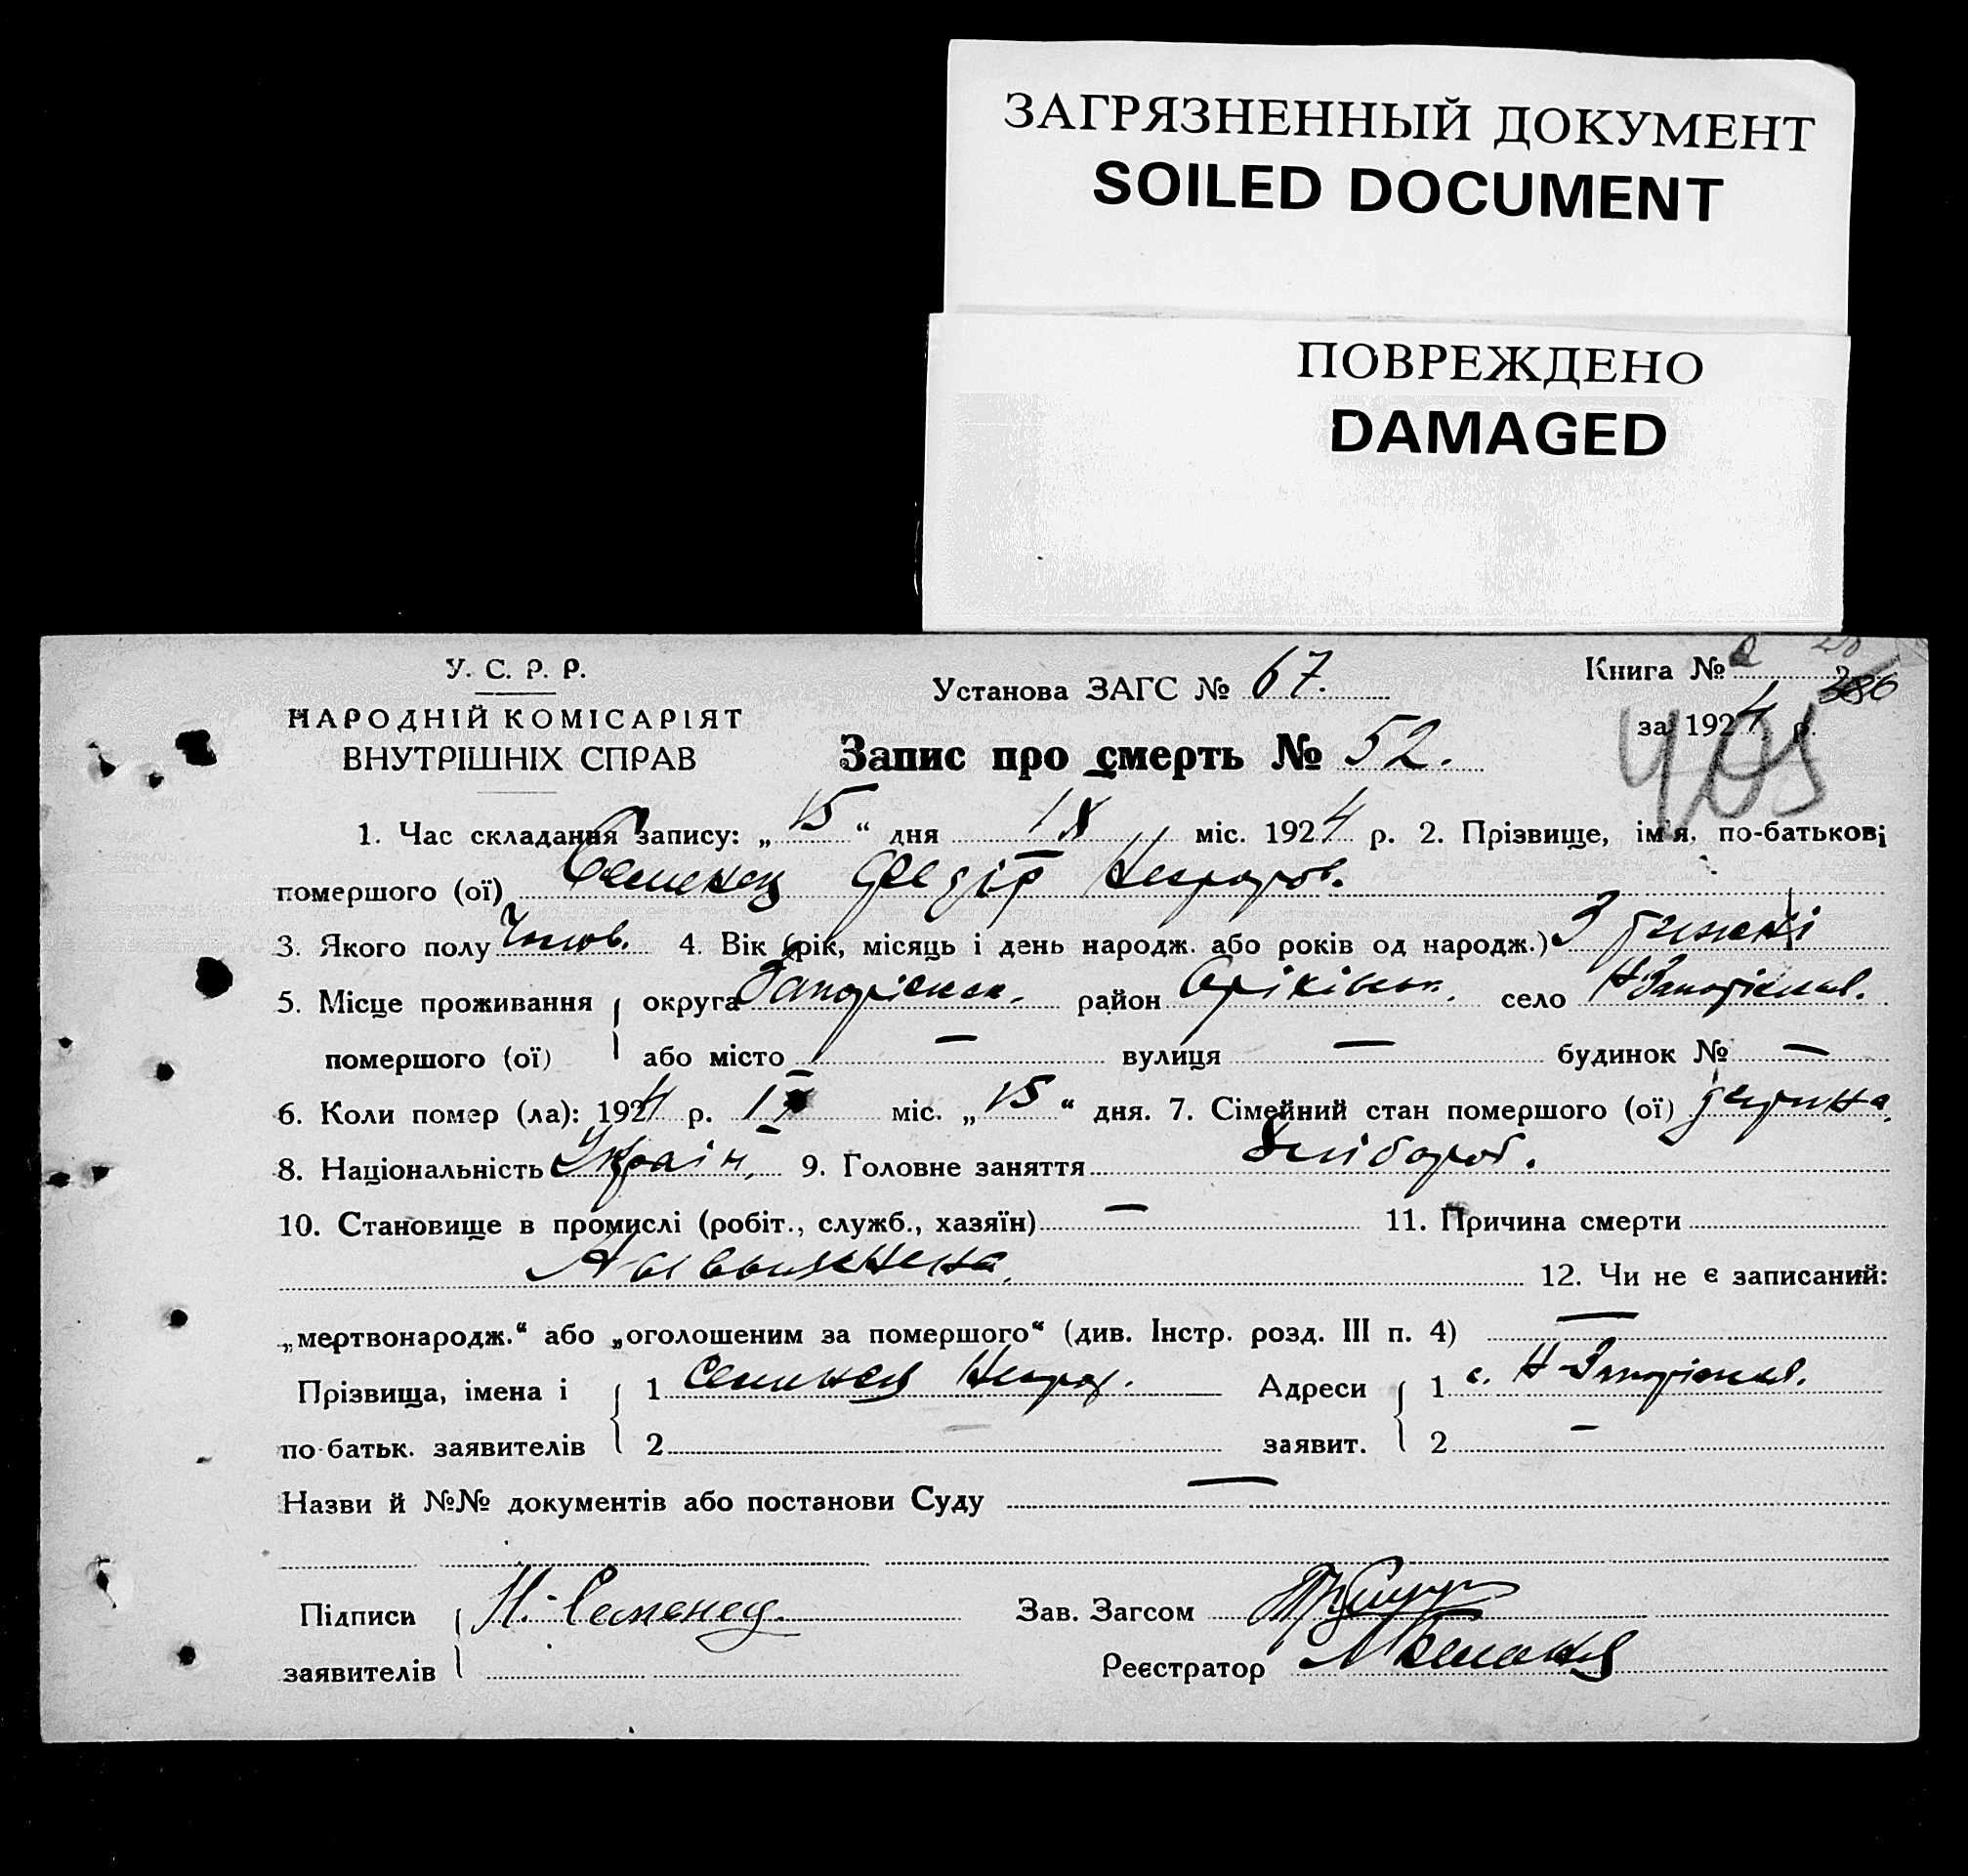 ЗАГРЯЗНЕННЫЙ ДОКУМЕНТ
SOILED DOCUMENT
ПОВРЕЖДЕНО
DAMAGED
У. С. Р. Р.
НАРОДНІЙ КОМІСАРІЯТ
ВНУТРІШНІХ СПРАВ
Установа ЗАГС № 67.
Книга №
за 1924 р.
405
Запис про смерть № 52.
1. Час складання запису: „15“ дня IX міс. 1924 р. 2. Прізвище, ім'я, по-батькові
помершого (ої) Семенец Федір
3. Якого полу Чолов. 4. Вік (рік, місяць і день народж. або років од народж.) 3
5. Місце проживання округа Запоріжск. район Оріхівськ. село Н-Запоріжжя.
помершого (ої) або місто — вулиця — будинок № —
6. Коли помер (ла): 1924 р. IX міс. „15“ дня. 7. Сімейний стан помершого (ої) детина
8. Національність Україн. 9. Головне заняття Хлібороб.
10. Становище в промислі (робіт., служб., хазяїн) — 11. Причина смерти
12. Чи не є записаний:
„мертвонародж.“ або „оголошеним за помершого“ (див. Інстр. розд. III п. 4) —
Прізвища, імена і 1 Семенец Адреси 1 с. Н-Запоріжжя.
по-батьк. заявителів 2 — заявит. 2 —
Назви й №№ документів або постанови Суду —
Підписи Н. Семенец. Зав. Загсом
заявителів Реєстратор